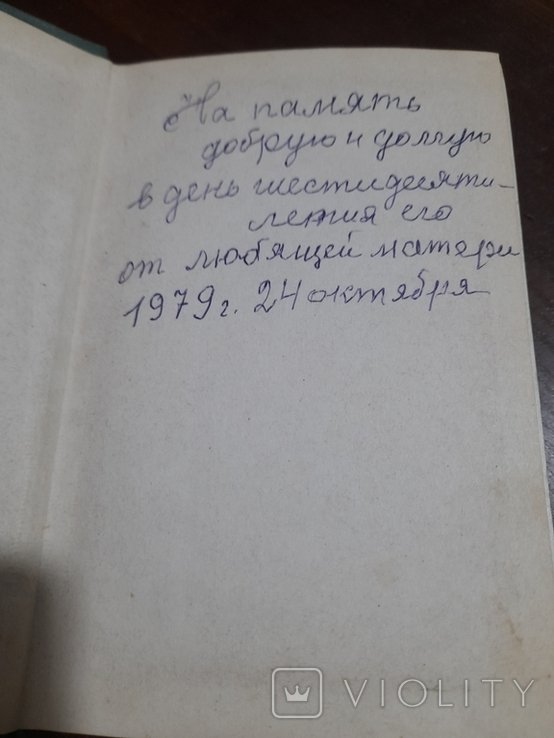 На память
добрую и долгую
в день шестидесяти-
летия его
от любящей матери
1979г. 24 октября
VIOLITY